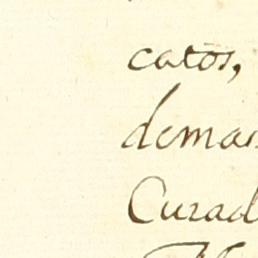 catos,
demas
Curad